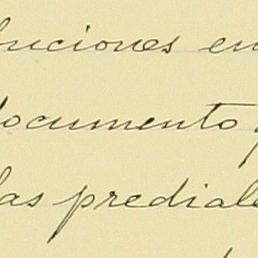 buciones en
documento
las predial